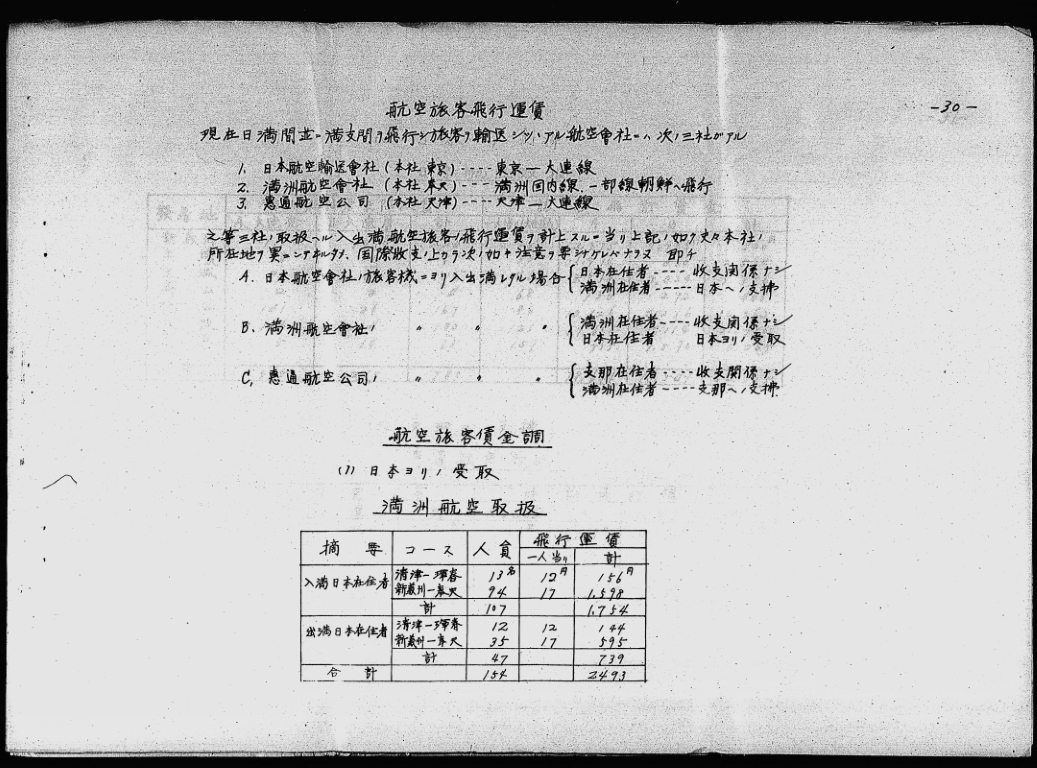 -30-
航空旅客飛行運賃
現在日満間並ニ満支間ヲ飛行シ旅客ヲ輸送シツヽアル航空會社ニハ次ノ三社ガアル
1. 日本航空輸送會社 (本社 東京) ---- 東京一大連線
2. 満洲航空會社 (本社 奉天) ---- 満洲国内線、一部線朝鮮ヘ飛行
3. 惠通航空公司 (本社 天津) ---- 天津一大連線
之等三社ノ取扱ヘル入出満航空旅客ノ飛行運賃ヲ計上スルニ当リ上記ノ如ク夫々本社ノ
所在地ヲ異ニシテキルタメ、国際收支ノ上カラ次ノ如キ注意ヲ要シナケレバナラヌ 即チ
A. 日本航空會社ノ旅客機ニヨリ入出満シタル場合 { 日本在住者 ---- 收支関係ナシ
満洲在住者 ----- 日本ヘノ支拂
B. 満洲航空會社ノ 〃 〃 〃 { 満洲在住者 ---- 收支関係ナシ
日本在住者 日本ヨリノ受取
C. 惠通航空公司ノ 〃 〃 〃 { 支那在住者 ---- 收支関係ナシ
満洲在住者 ---- 支那ヘノ支拂
航空旅客賃金調
(1) 日本ヨリノ受取
満洲航空取扱
摘要 コース 人員 飛行運賃
一人当リ 計
入満日本在住者 清津一琿春 13名 12円 156円
新義州一奉天 94 17 1,598
計 107 1,754
出満日本在住者 清津一琿春 12 12 144
新義州一奉天 35 17 595
計 47 739
合計 154 2493